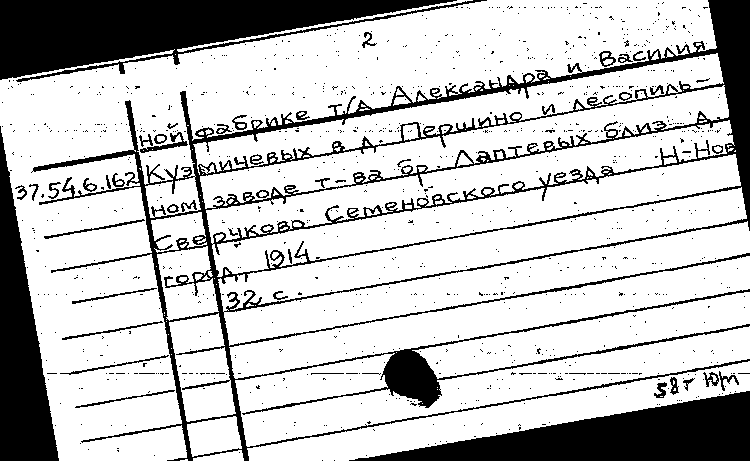 2
ной фабрике т/д Александра и Василия
Кузмичевых в д. Першино и лесопиль-
37.54.6.162
ном заводе т-ва бр. Лаптевых близ д.
Сверчково Семеновского уезда Н-Нов
город,, 1914.
32 с.
58т